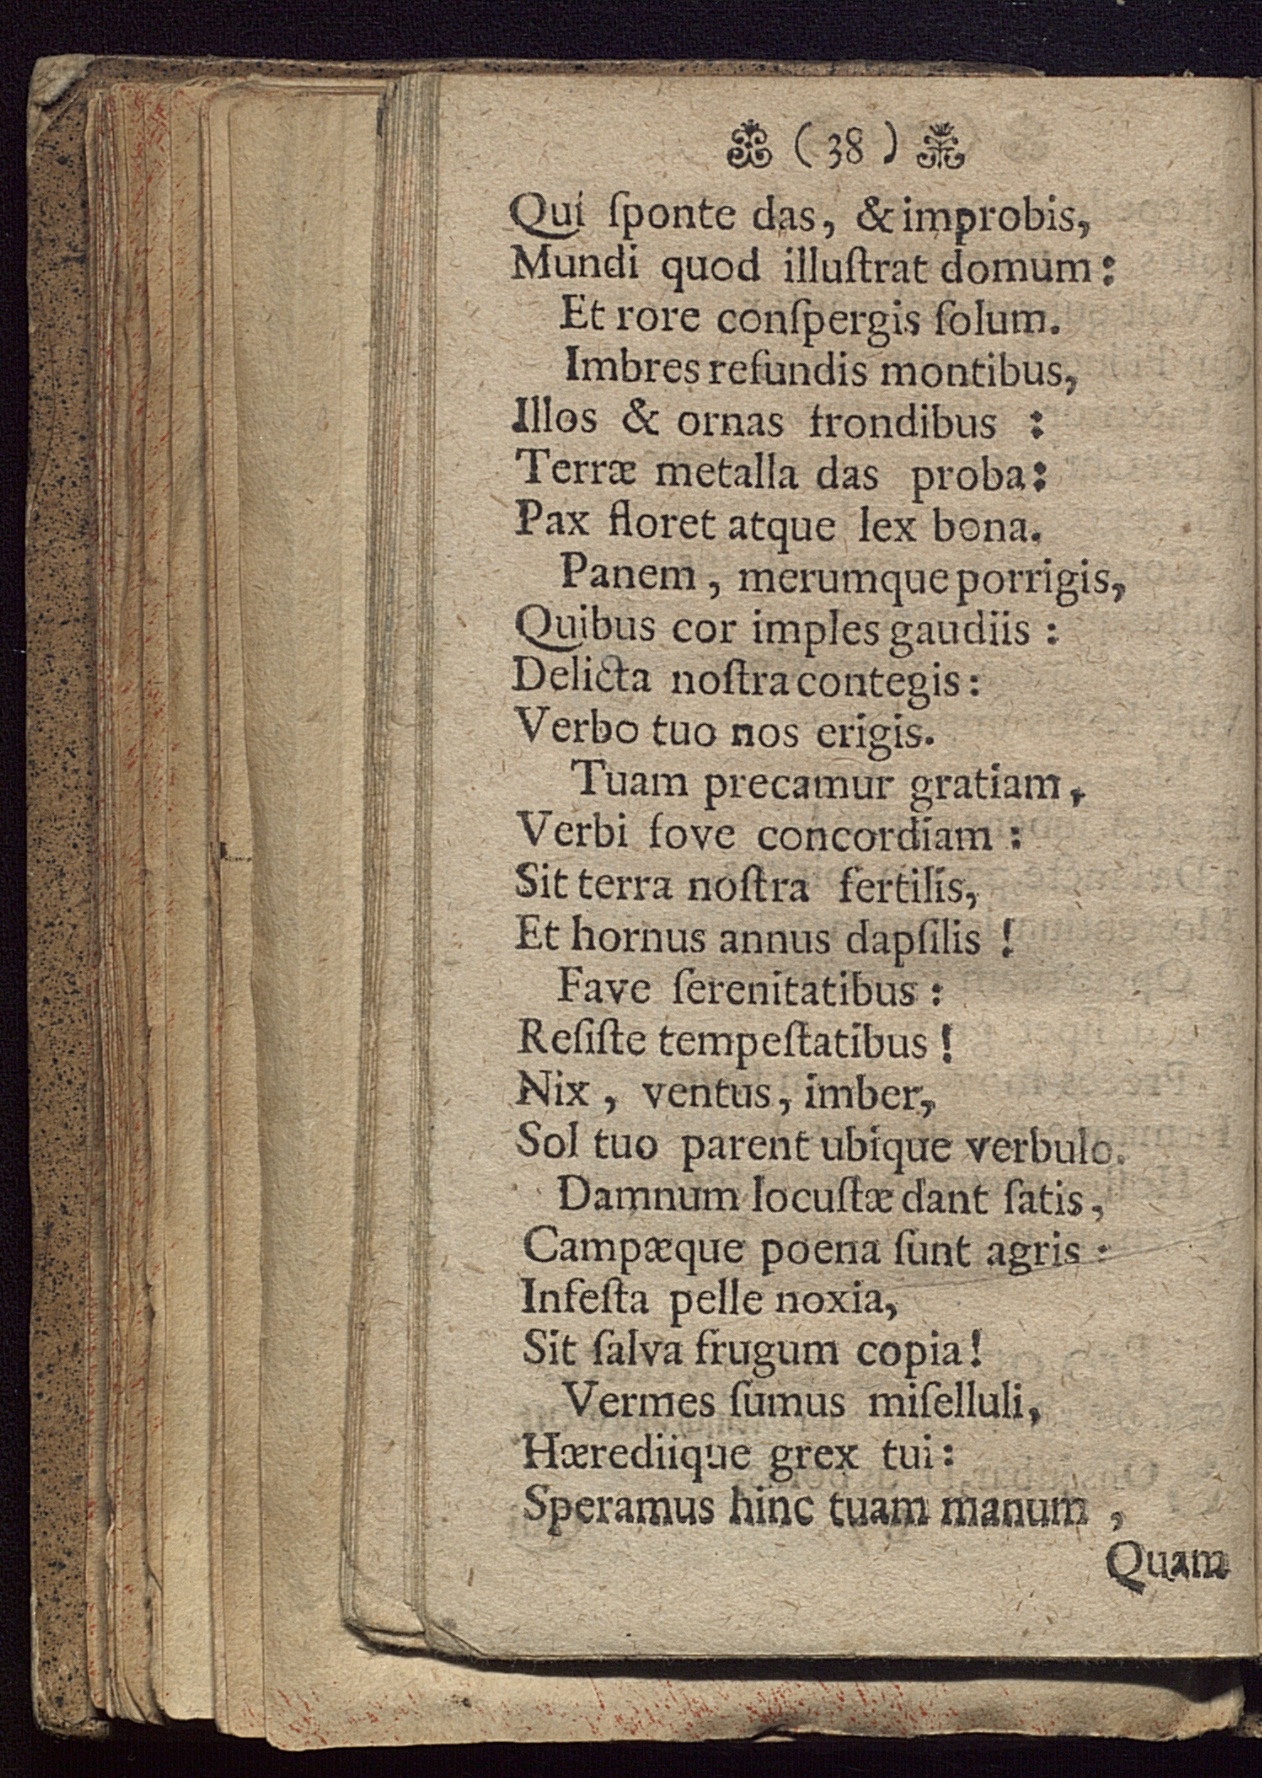 ( 38 )
Qui ſponte das, & improbis,
Mundi quod illuſtrat domum:
Et rore conſpergis ſolum.
Imbres refundis montibus,
Illos & ornas frondibus :
Terræ metalla das proba:
Pax floret atque lex bona.
Panem, merumque porrigis,
Quibus cor imples gaudiis :
Delicta noſtra contegis:
Verbo tuo nos erigis.
Tuam precamur gratiam,
Verbi fove concordiam :
Sit terra noſtra fertilis,
Et hornus annus dapſilis !
Fave ſerenitatibus :
Reſiſte tempeſtatibus !
Nix, ventus, imber,
Sol tuo parent ubique verbulo.
Damnum locuſtæ dant ſatis,
Campæque poena ſunt agris :
Infeſta pelle noxia,
Sit ſalva frugum copia!
Vermes ſumus miſelluli,
Hærediique grex tui:
Speramus hinc tuam manum ,
Quam